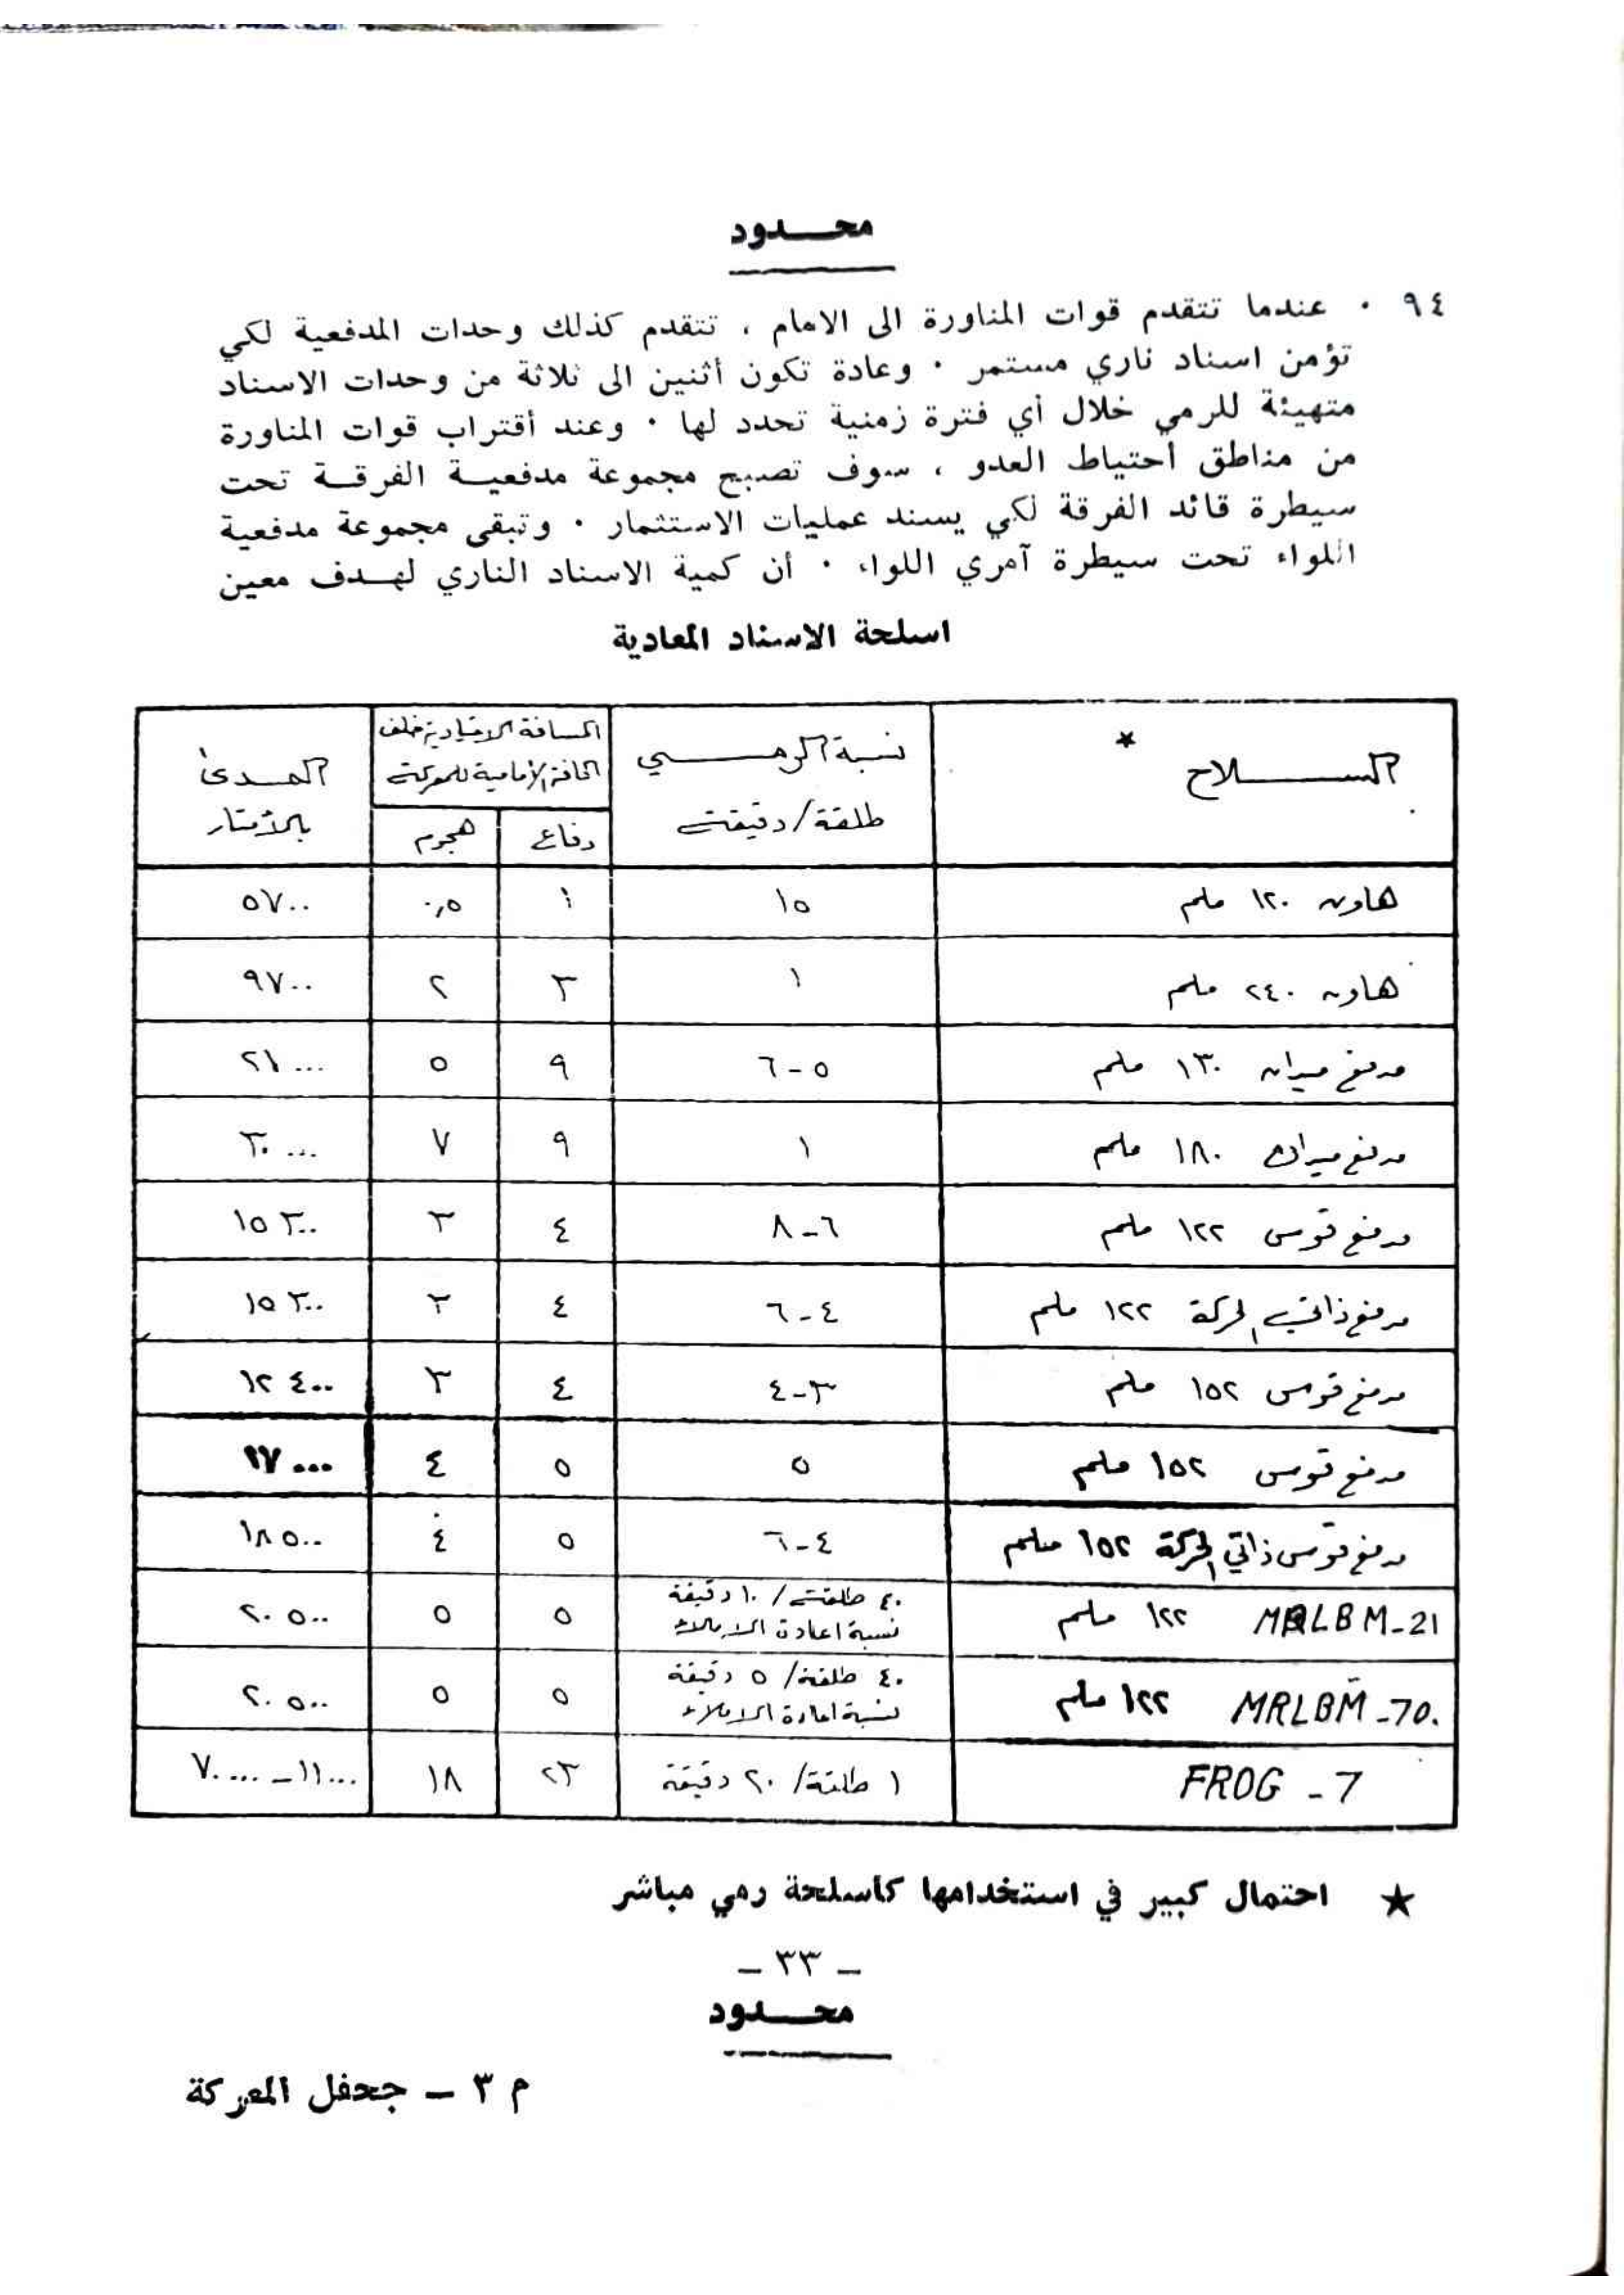 محــدود
٩٤ ٠ عندما تتقدم قوات المناورة الى الامام ، تتقدم كذلك وحدات المدفعية لكي
تؤمن اسناد ناري مستمر ٠ وعادة تكون أثنين الى ثلاثة من وحدات الاسناد
متهيئة للرمي خلال أي فترة زمنية تحدد لها ٠ وعند أقتراب قوات المناورة
من مناطق أحتياط العدو ، سوف تصبح مجموعة مدفعيــة الفرقــة تحت
سيطرة قائد الفرقة لكي يسند عمليات الاستثمار ٠ وتبقى مجموعة مدفعية
اللواء تحت سيطرة آمري اللواء ٠ أن كمية الاسناد الناري لهــدف معين
اسلحة الاسناد المعادية
الســلاح * نسبة الرمــي المسافة الاعتيادية خلف المــدى
طلقة/دقيقة الحافة الأمامية للمعركة بالأمتار
دفاع هجوم
هاون ١٢٠ ملم ١٥ ١ ٠,٥ ٥٧٠٠
هاون ٢٤٠ ملم ١ ٣ ٢ ٩٧٠٠
مدفع ميدان ١٣٠ ملم ٥-٦ ٩ ٥ ٢١٠٠٠
مدفع ميدان ١٨٠ ملم ١ ٩ ٧ ٣٠٠٠٠
مدفع قوس ١٢٢ ملم ٦-٨ ٤ ٣ ١٥٣٠٠
مدفع ذاتي الحركة ١٢٢ ملم ٤-٦ ٤ ٣ ١٥٣٠٠
مدفع قوس ١٥٢ ملم ٣-٤ ٤ ٣ ١٢٤٠٠
مدفع قوس ١٥٢ ملم ٥ ٥ ٤ ١٧٠٠٠
مدفع قوس ذاتي الحركة ١٥٢ ملم ٤-٦ ٥ ٤ ١٨٥٠٠
MRLBM-21 ١٢٢ ملم ٤٠ طلقة/١٠ دقيقة ٥ ٥ ٢٠٥٠٠
نسبة اعادة الاملاء
MRLBM-70. ١٢٢ ملم ٤٠ طلقة/٥ دقيقة ٥ ٥ ٢٠٥٠٠
نسبة اعادة الاملاء
FROG-7 ١ طلقة/٢٠ دقيقة ٢٣ ١٨ ١١٠٠٠-٧٠٠٠٠
★ احتمال كبير في استخدامها كأسلحة رمي مباشر
- ٣٣ -
محــدود
م ٣ - جحفل المعركة